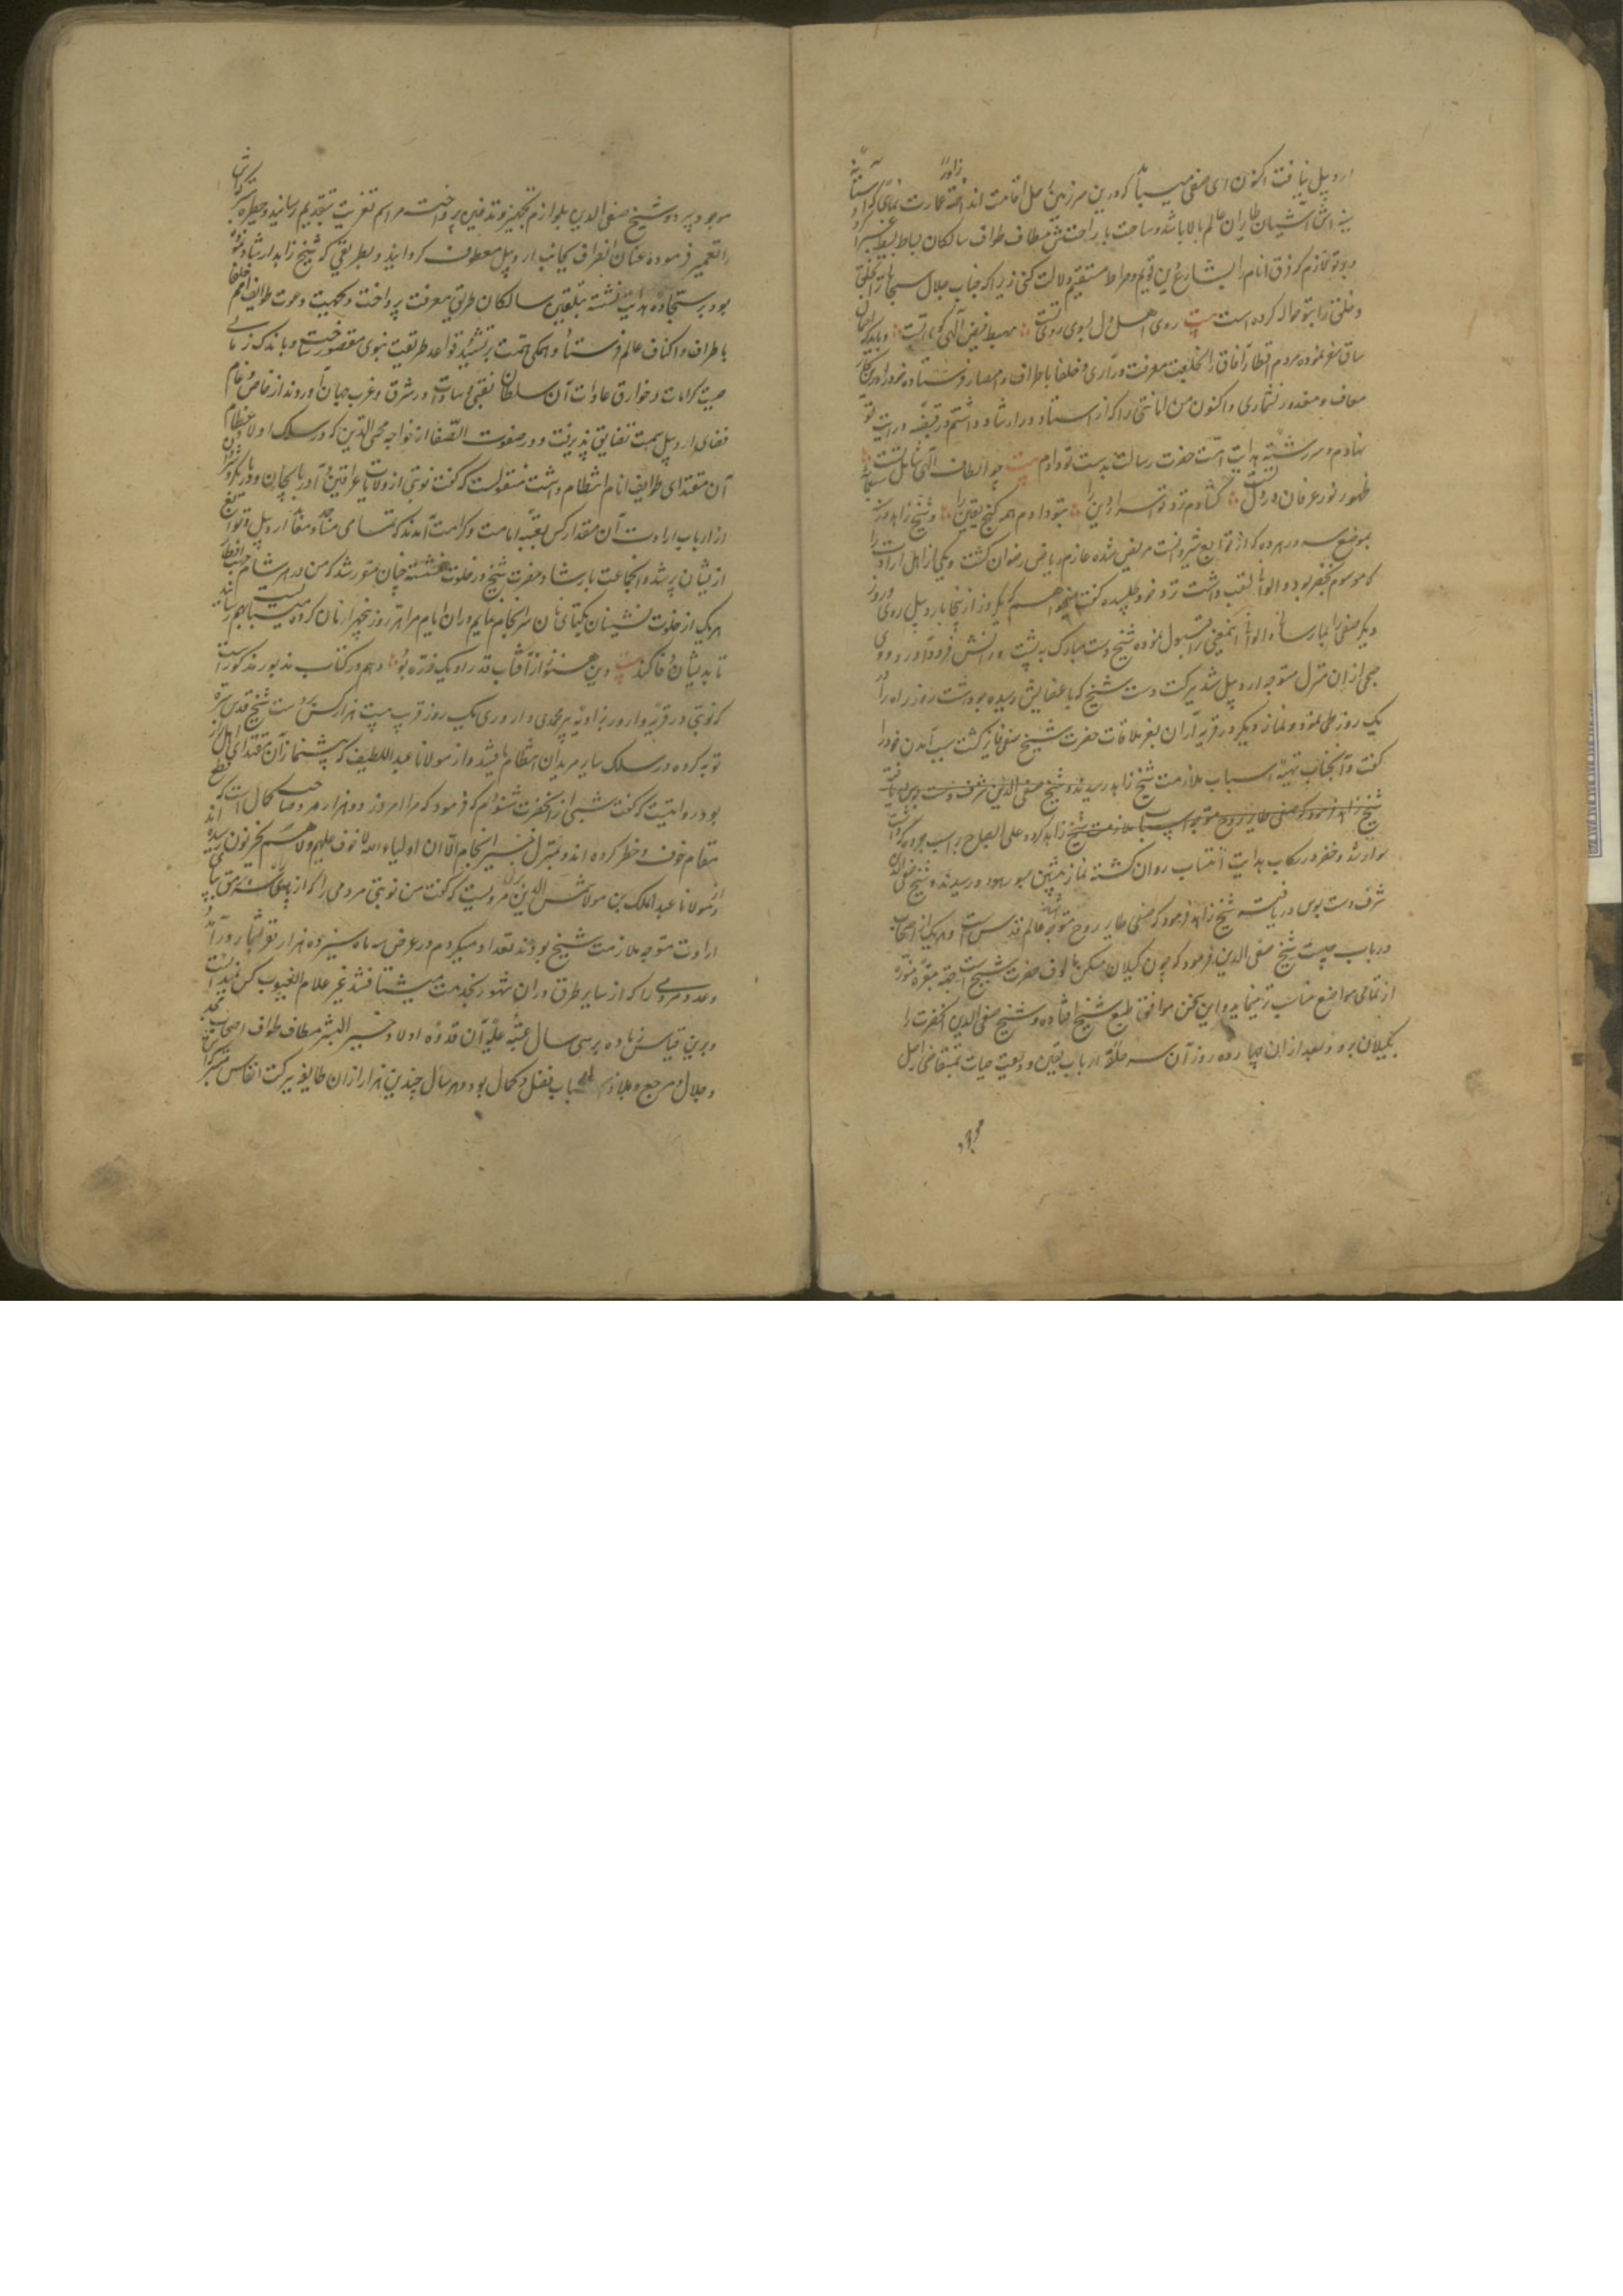 اردبیل نیافت اکنون ای صفی می باید که درین سرزمین زاویه اصل اقامت انداخته عمارت نمای که آستانه
اش آشیان طایران عالم بالا باشد و ساحت با راحتش مطاف طواف سالکان بساط بسیط غبرا
و بر تو لازم که فرق انام را بشارع دین قویم و صراط مستقیم دلالت کنی زیرا که جناب جلال سبحانی
و خلق را بتو حواله کرده است بیت روی اهل دل بسوی روی تست مهبط فیض الهی کوی تست و باید که
ساق سفر نموده مردم اقطار آفاق را بخلعت معرفت در آری و خلفا باطراف و امصار فرستاده خود را درین کار
معاف و معذور نشماری و اکنون من امانتی را که از استاد در ارشاد داشتم در قبضه درایت تو
نهادم و سر رشته هدایت امت حضرت رسالت بدست تو دادم بیت چو الطاف الهی شامل تست
ظهور نور عرفان در دل تست گشادم نزد تو اسرار دین را بتو دادم همه گنج یقین را و شیخ زاهد
بموضع سورمرده که از توابع شروانست مریض شده عازم ریاض رضوان گشت و یکی از اهل ارادت را
که موسوم بجعفر بود و الوانا لقب داشت نزد خود طلبیده گفت میخواهم که یکروز از اینجا باردبیل روی و روز
دیگر صفی را اینجا رسانی و الوانا اینمعنی را قبول نموده شیخ دست مبارک به پشت و رانش فرود آورد و وی
جمی از ان منزل متوجه اردبیل شد ببرکت دست شیخ که باعضایش رسیده بود شت روزه راه را در
یک روز طی نمود و نماز دیگر در قریه آران بعز ملاقات حضرت شیخ صفی فایز گشت سبب آمدن خود را
گفت و آنجناب تهیه اسباب ملازمت شیخ زاهد کرده علی الصباح بر اسب جرده
سوار شد و جعفر در رکاب هدایت انتساب روان گشته نماز پیشین بسورمرده رسیدند و شیخ صفی الدین
شرف دست بوس دریافته شیخ زاهد فرمود که صفی طایر روح متوجه عالم قدس است و هر یک از اصحاب
در باب چیست شیخ صفی الدین فرمود که چون گیلان مسکن مالوف حضرت شیخ است جهة مقبره منوره
از تمامی مواضع مناسب تر مینماید و این سخن موافق طبع شیخ افتاده و شیخ صفی الدین آنحضرت را
بگیلان برد و بعد از ان چهارده روز آن سر حلقه ارباب یقین ودیعت حیات بمتقاضی اجل
موجود
سپرد و شیخ صفی الدین بلوازم تجهیز و تدفین پرداخت مراسم تعزیت بتقدیم رسانید و حظیره متبرکه اش
را تعمیر فرموده عنان انصراف بجانب اردبیل معطوف گردانید و بطریقی که شیخ زاهد ارشاد نموده
بود بر سجاده هدایت نشسته بتلقین سالکان طریق معرفت پرداخت و بجهت دعوت طوایف امم خلفا
باطراف و اکناف عالم فرستاد و همگی همت بر تشیید قواعد طریقت نبوی مقصور ساخت و باندک زمانی
صیت کرامات و خوارق عادات آن سلطان نقبا و سادات در شرق و غرب جهان افتاد و روند از خاص و عام
فضای اردبیل سمت تضایق پذیرفت و در صفوت الصفا از خواجه محی الدین که در سلک اولاد عظام
آن مقتدای طوایف انام انتظام داشت منقولست که گفت نوبتی از ولایات عراقین و آذربایجان و دیار بکر
از ارباب ارادت آن مقدار کس بعتبه امامت و کرامت آمدند که تمامی مساجد و معابد اردبیل و توابع
از یشان پر شد و انجماعت بارشاد حضرت شیخ در خلوت نشسته چنان مقرر شد که من در هر شام افطار
هر یک از خلوت نشینان بیکتای نان سرانجام نمایم و در ان ایام مرا هر روز پنجهزار نان کرده می بایست بهم رسانید
تا بدیشان وفا کند بیت وین هنوز از آفتاب قدر او یک ذره بود و هم در کتاب مذبور مذکور است
که نوبتی در قریه وارور بزاویه پیر محمدی داروری یک روز قریب بیست هزار کس بدست شیخ قدس سره
توبه کرده در سلک سایر مریدان انتظام یافتند و از مولانا عبد اللطیف که پیشنماز آن مقتدای اهل
بود روایتست که گفت شبی از آنحضرت شنودم که فرمود که مرا امروز دو هزار مرید صاحب کمال است که از
مقام خوف و خطر کرده اند و بمنزل خیر انجام الا ان اولیاء الله لا خوف علیهم ولا هم یحزنون رسیده
و از مولانا عبد الملک بن مولانا شمس الدین مرویست که گفت من نوبتی مردمی را که از راه مراغه بپای
ارادت متوجه ملازمت شیخ بودند تعداد میکردم در عرض سه ماه سیزده هزار نفر بشمار در آمد
و عدد مردمی را که از سایر طرق در ان شهور بخدمت میشتافتند غیر علام الغیوب کس ندانست
و برین قیاس زیاده بر سی سال عتبه علیه آن قدوه اولاد خیر البشر مطاف طواف اصحاب مجد
و جلال و مرجع و ملاذ ارباب فضل و کمال بود و هر سال چندین هزار از ان طایفه ببرکت انفاس متبرکش